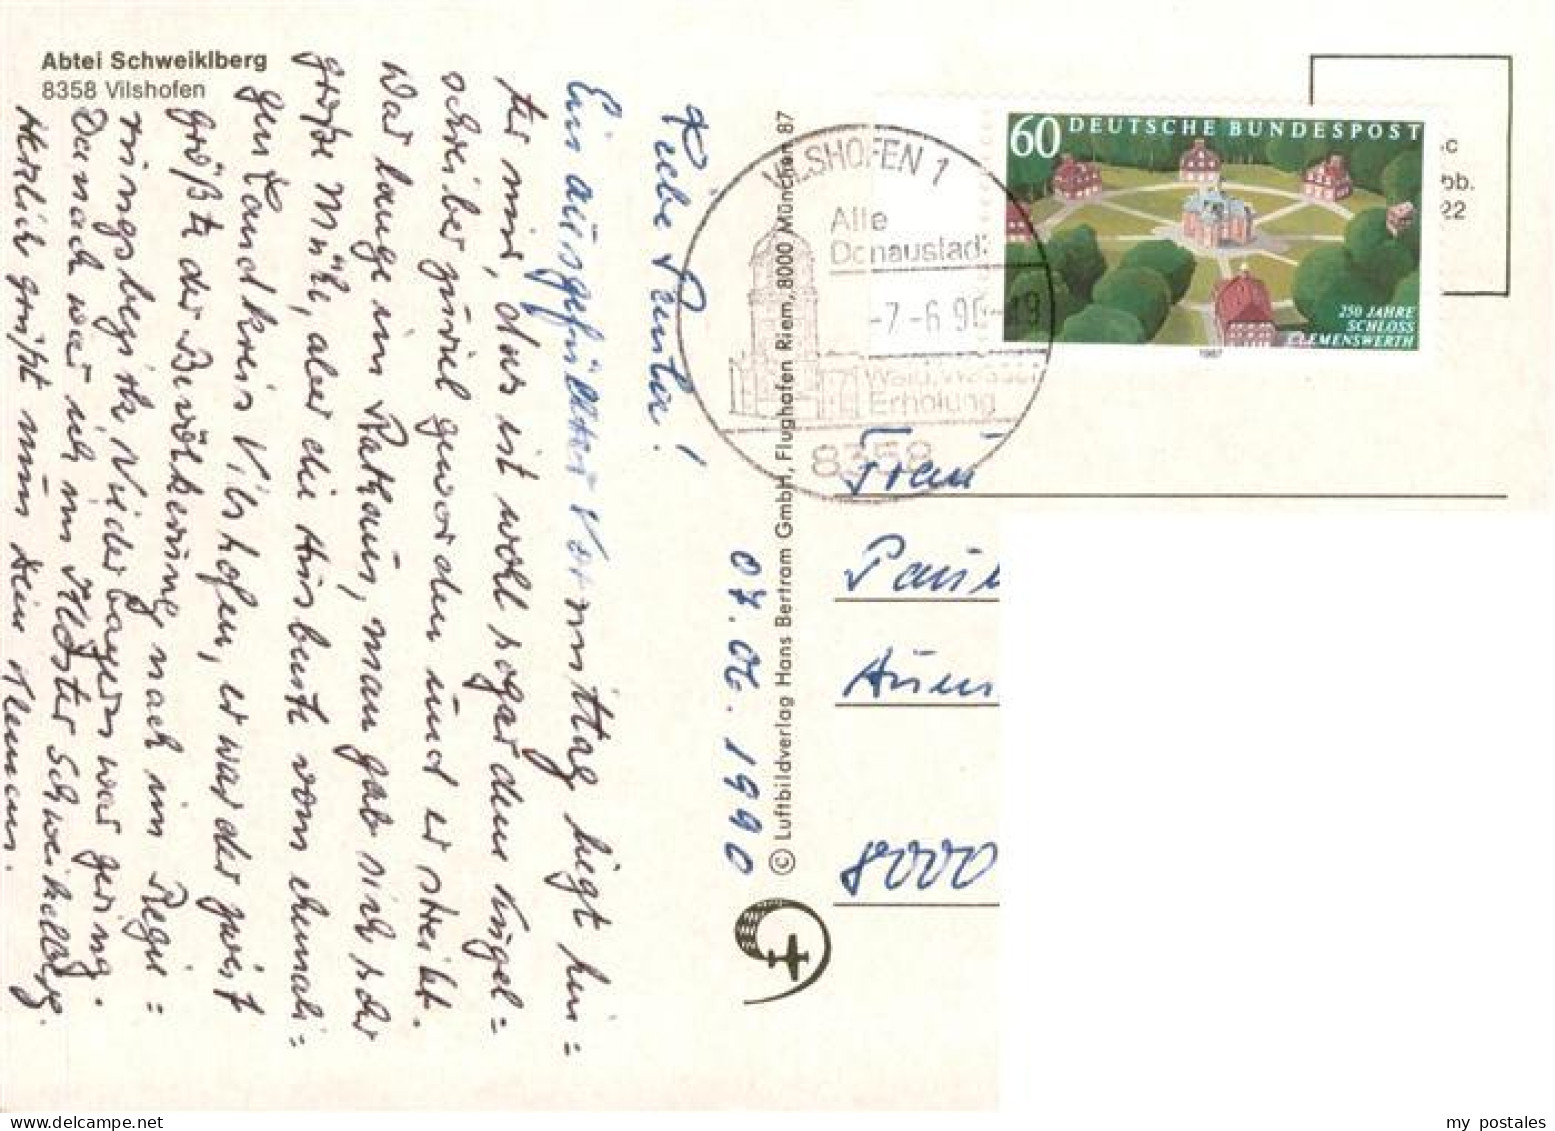 Abtei Schweiklberg
8358 Vilshofen
Liebe
Ein ausgefüllter Vormittag liegt hin=
ter mir, das ist wohl sogar dem Kugel=
schreiber zuviel geworden und er streikt.
War lange im Rathaus, man gab sich sehr
große Mühe, aber die Ausbeute vom ehemali=
gen Landkreis Vilshofen, er war der zweit
größte der Bevölkerung nach im Regie=
rungsbezirk Niederbayern war gering.
Danach war ich im Kloster Schweiklberg.
Herzlich grüßt nun dein
07.06.1990
© Luftbildverlag Hans Bertram GmbH, Flughafen Riem, 8000 München 87
VILSHOFEN 1
Alte
Donaustadt
-7.-6.90-19
Wald, Wasser
Erholung
8358
60 DEUTSCHE BUNDESPOST
250 JAHRE
SCHLOSS
CLEMENSWERTH
1987
c
bb.
22
Frau
8000
www.delcampe.net
my_postales